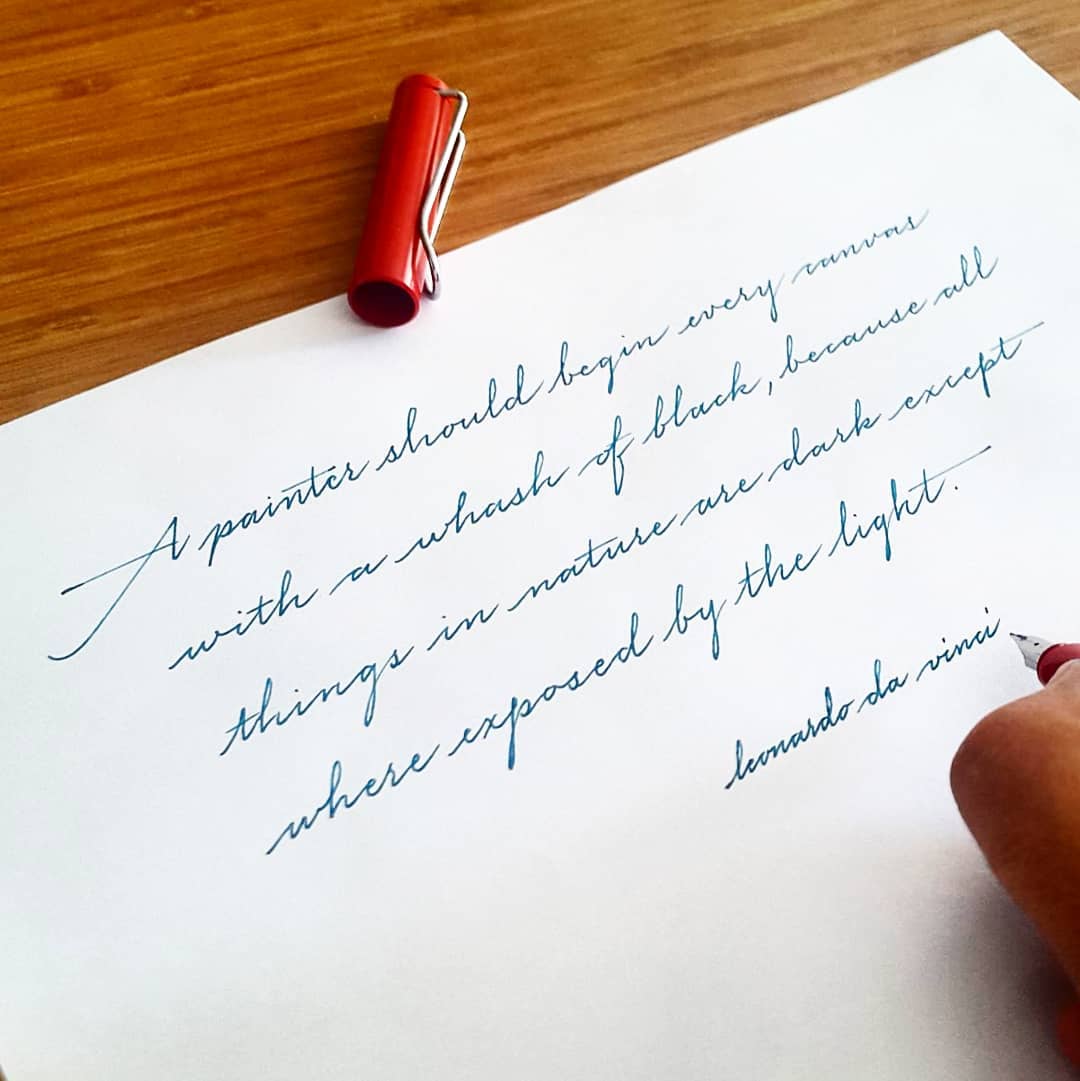 A painter should begin every canvas
with a whash of black, because all
things in nature are dark except
where exposed by the light.
leonardo da vinci